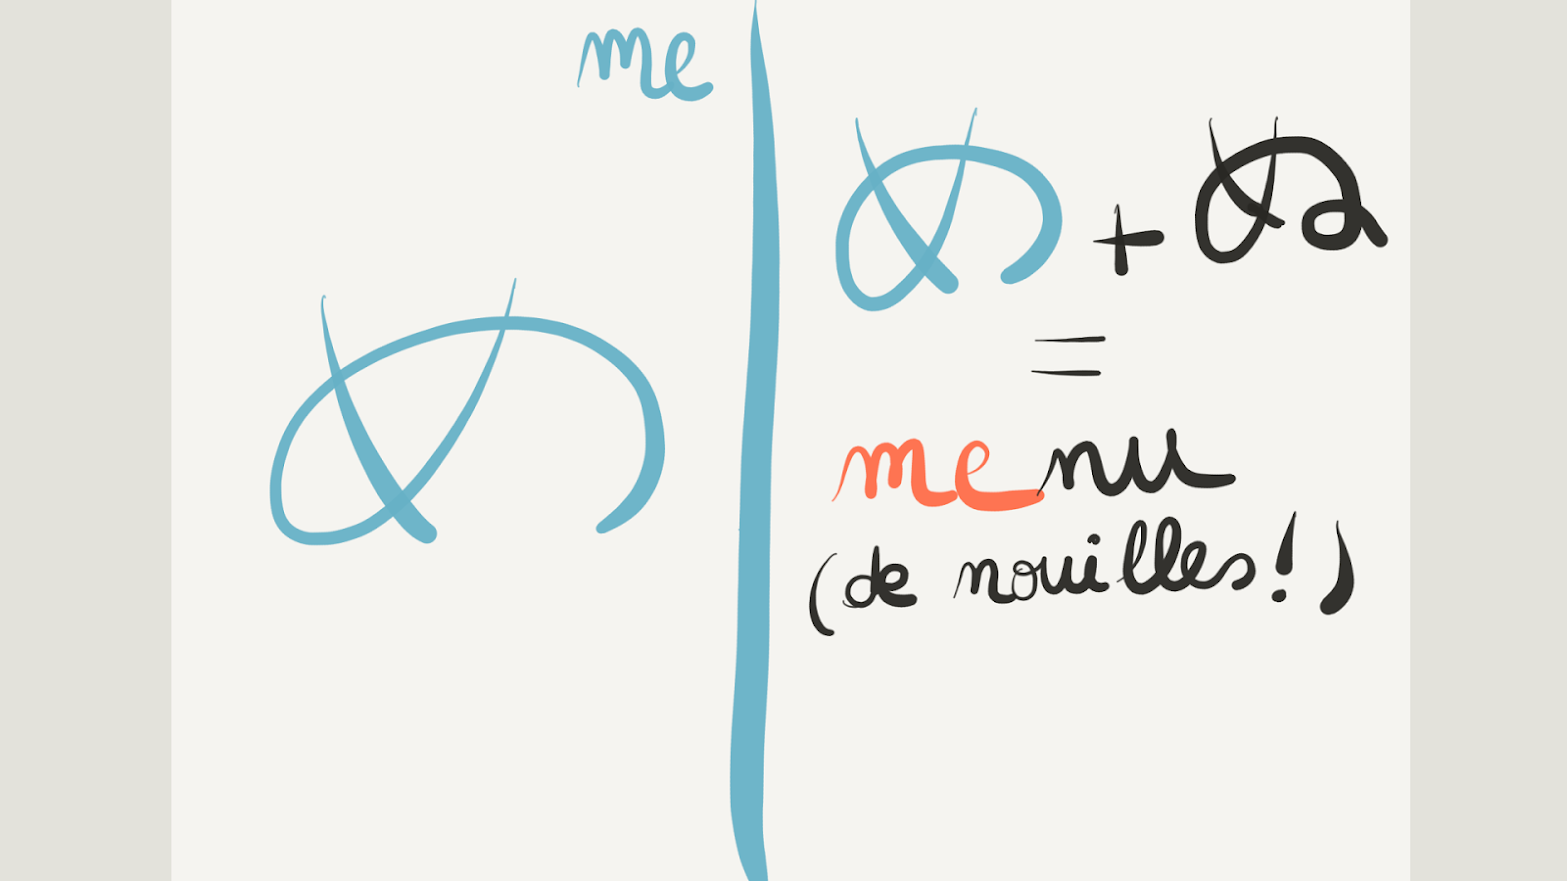 me
め
め + ぬ
=
menu
(de nouilles!)